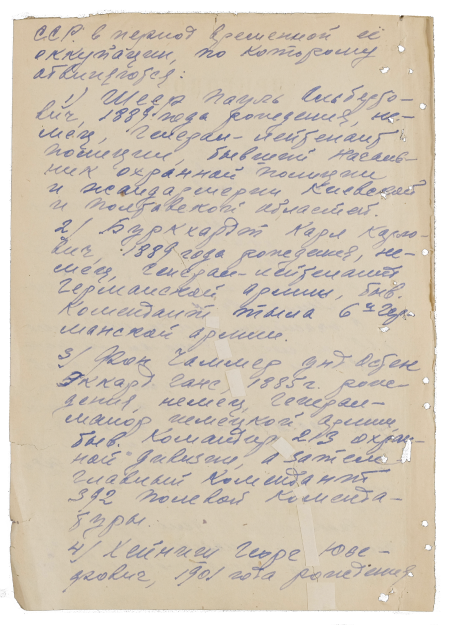 ССР в период временной её
оккупации, по которому
обвиняются:
1) Шеер Пауль Альберто-
вич, 1889 года рождения, не-
мец, генерал-лейтенант
полиции, бывший началь-
ник охранной полиции
и жандармерии Киевской
и Полтавской областей.
2) Буркхардт Карл Карло-
вич, 1889 года рождения, не-
мец, генерал-лейтенант
германской армии, быв.
комендант тыла 6й гер-
манской армии.
3) Фон Чаммер унд Остен
Эккардт Ганс, 1885 г. рож-
дения, немец, генерал-
майор немецкой армии,
быв. командир 213 охран-
ной дивизии, а затем
главный комендант
392 полевой коменда-
туры.
4) Хейниш Георг Юве-
рович, 1901 года рождения